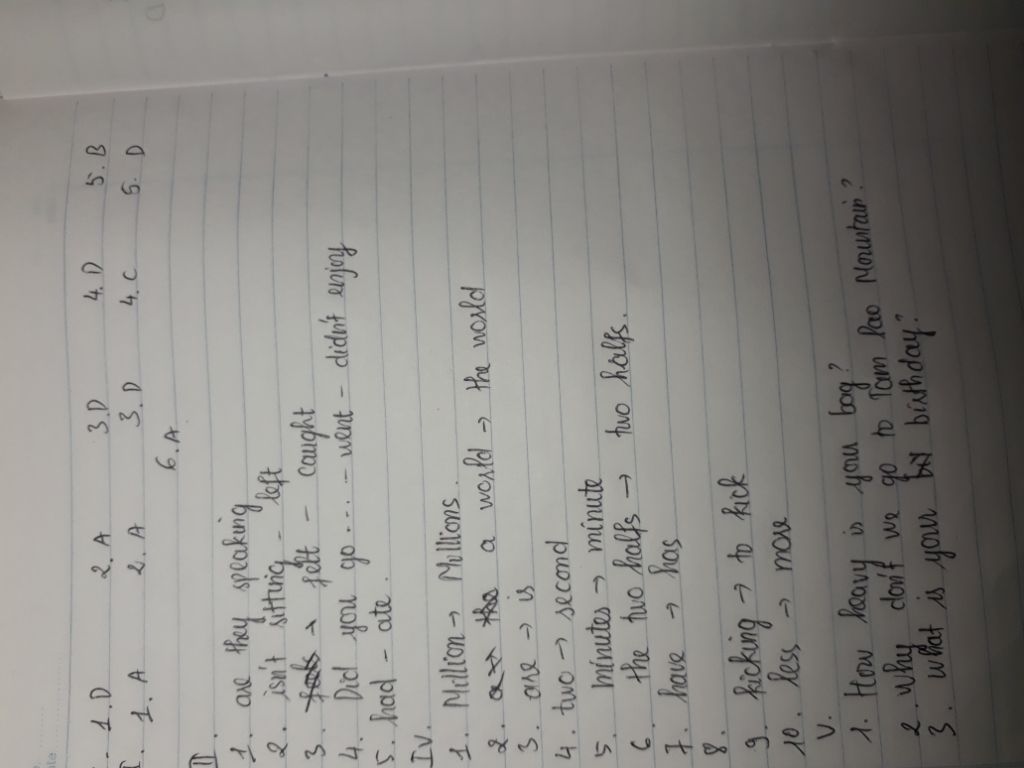 . 1.D 2.A 3.D 4.D 5.B
I. 1.A 2.A 3.D 4.C 5.D
6.A
III.
1. are they speaking
2. isn't sitting - left
3. felt - caught
4. Did you go .... - went - didn't enjoy
5. had - ate.
IV.
1. Million → Millions.
2. a world → the world
3. are → is
4. two → second
5. minutes → minute
6. the two halfs → two halfs.
7. have → has
8.
9. kicking → to kick
10. less → more
V.
1. How heavy is your bag?
2. why don't we go to Tam Dao Mountain?
3. what is your birthday?